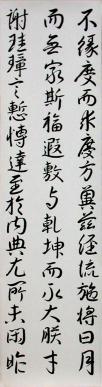 不緣慶而求慶方冀茲經流施將日月
而無窮斯福遐敷與乾坤而永大朕才
謝珪璋言慚博達至於內典尤所未閑昨